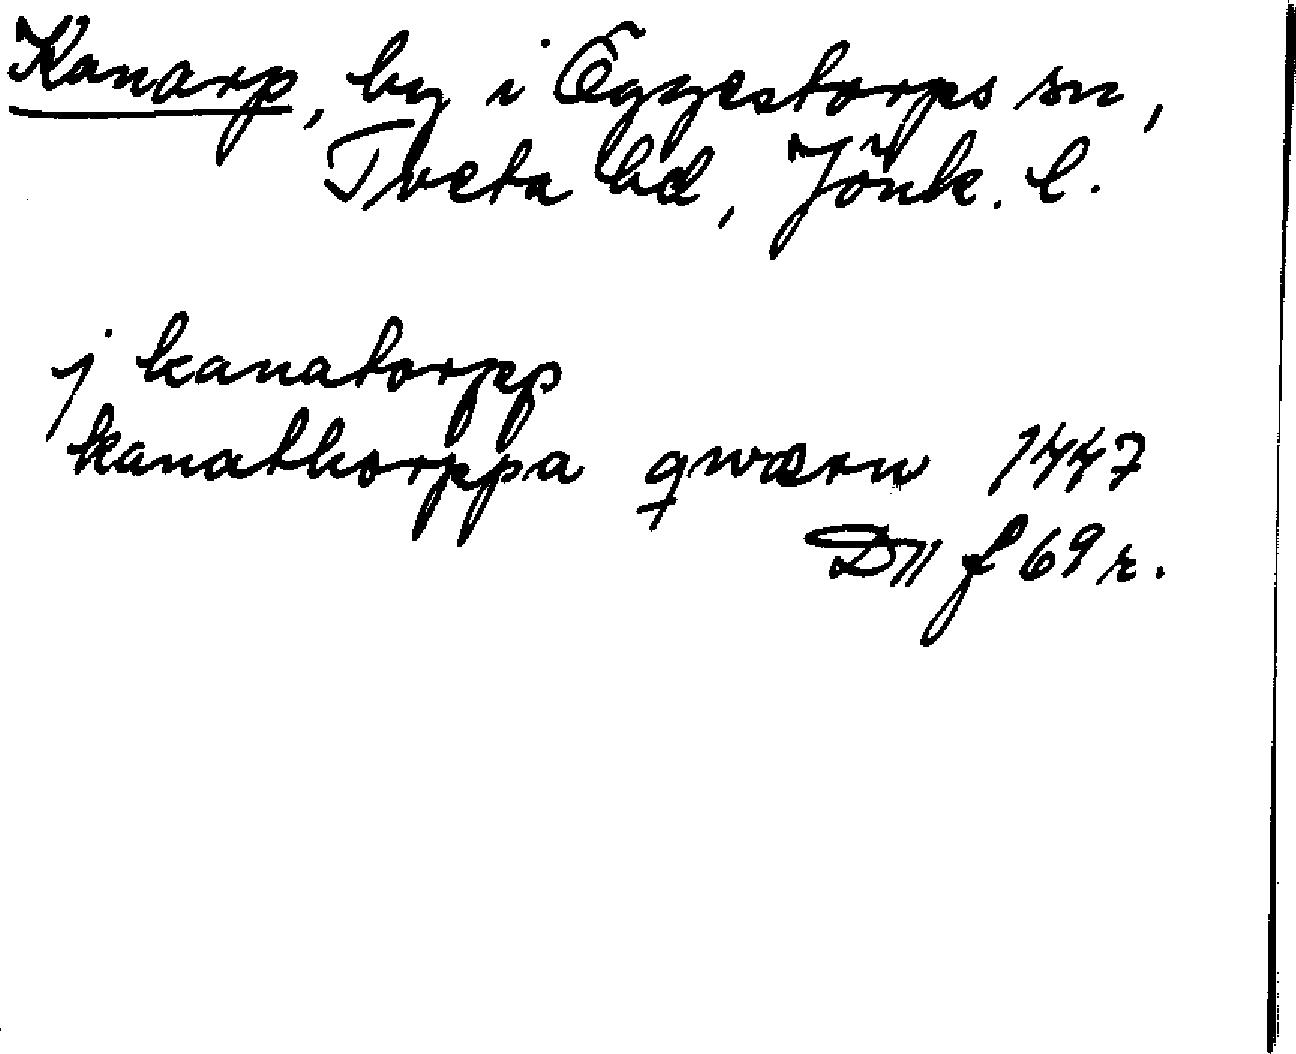 Kanarp, by i Öggestorps sn,
Tveta hd, Jönk. l.
j kanatorpp
kanathorppa qwærn 1447
D11 f 69 r.